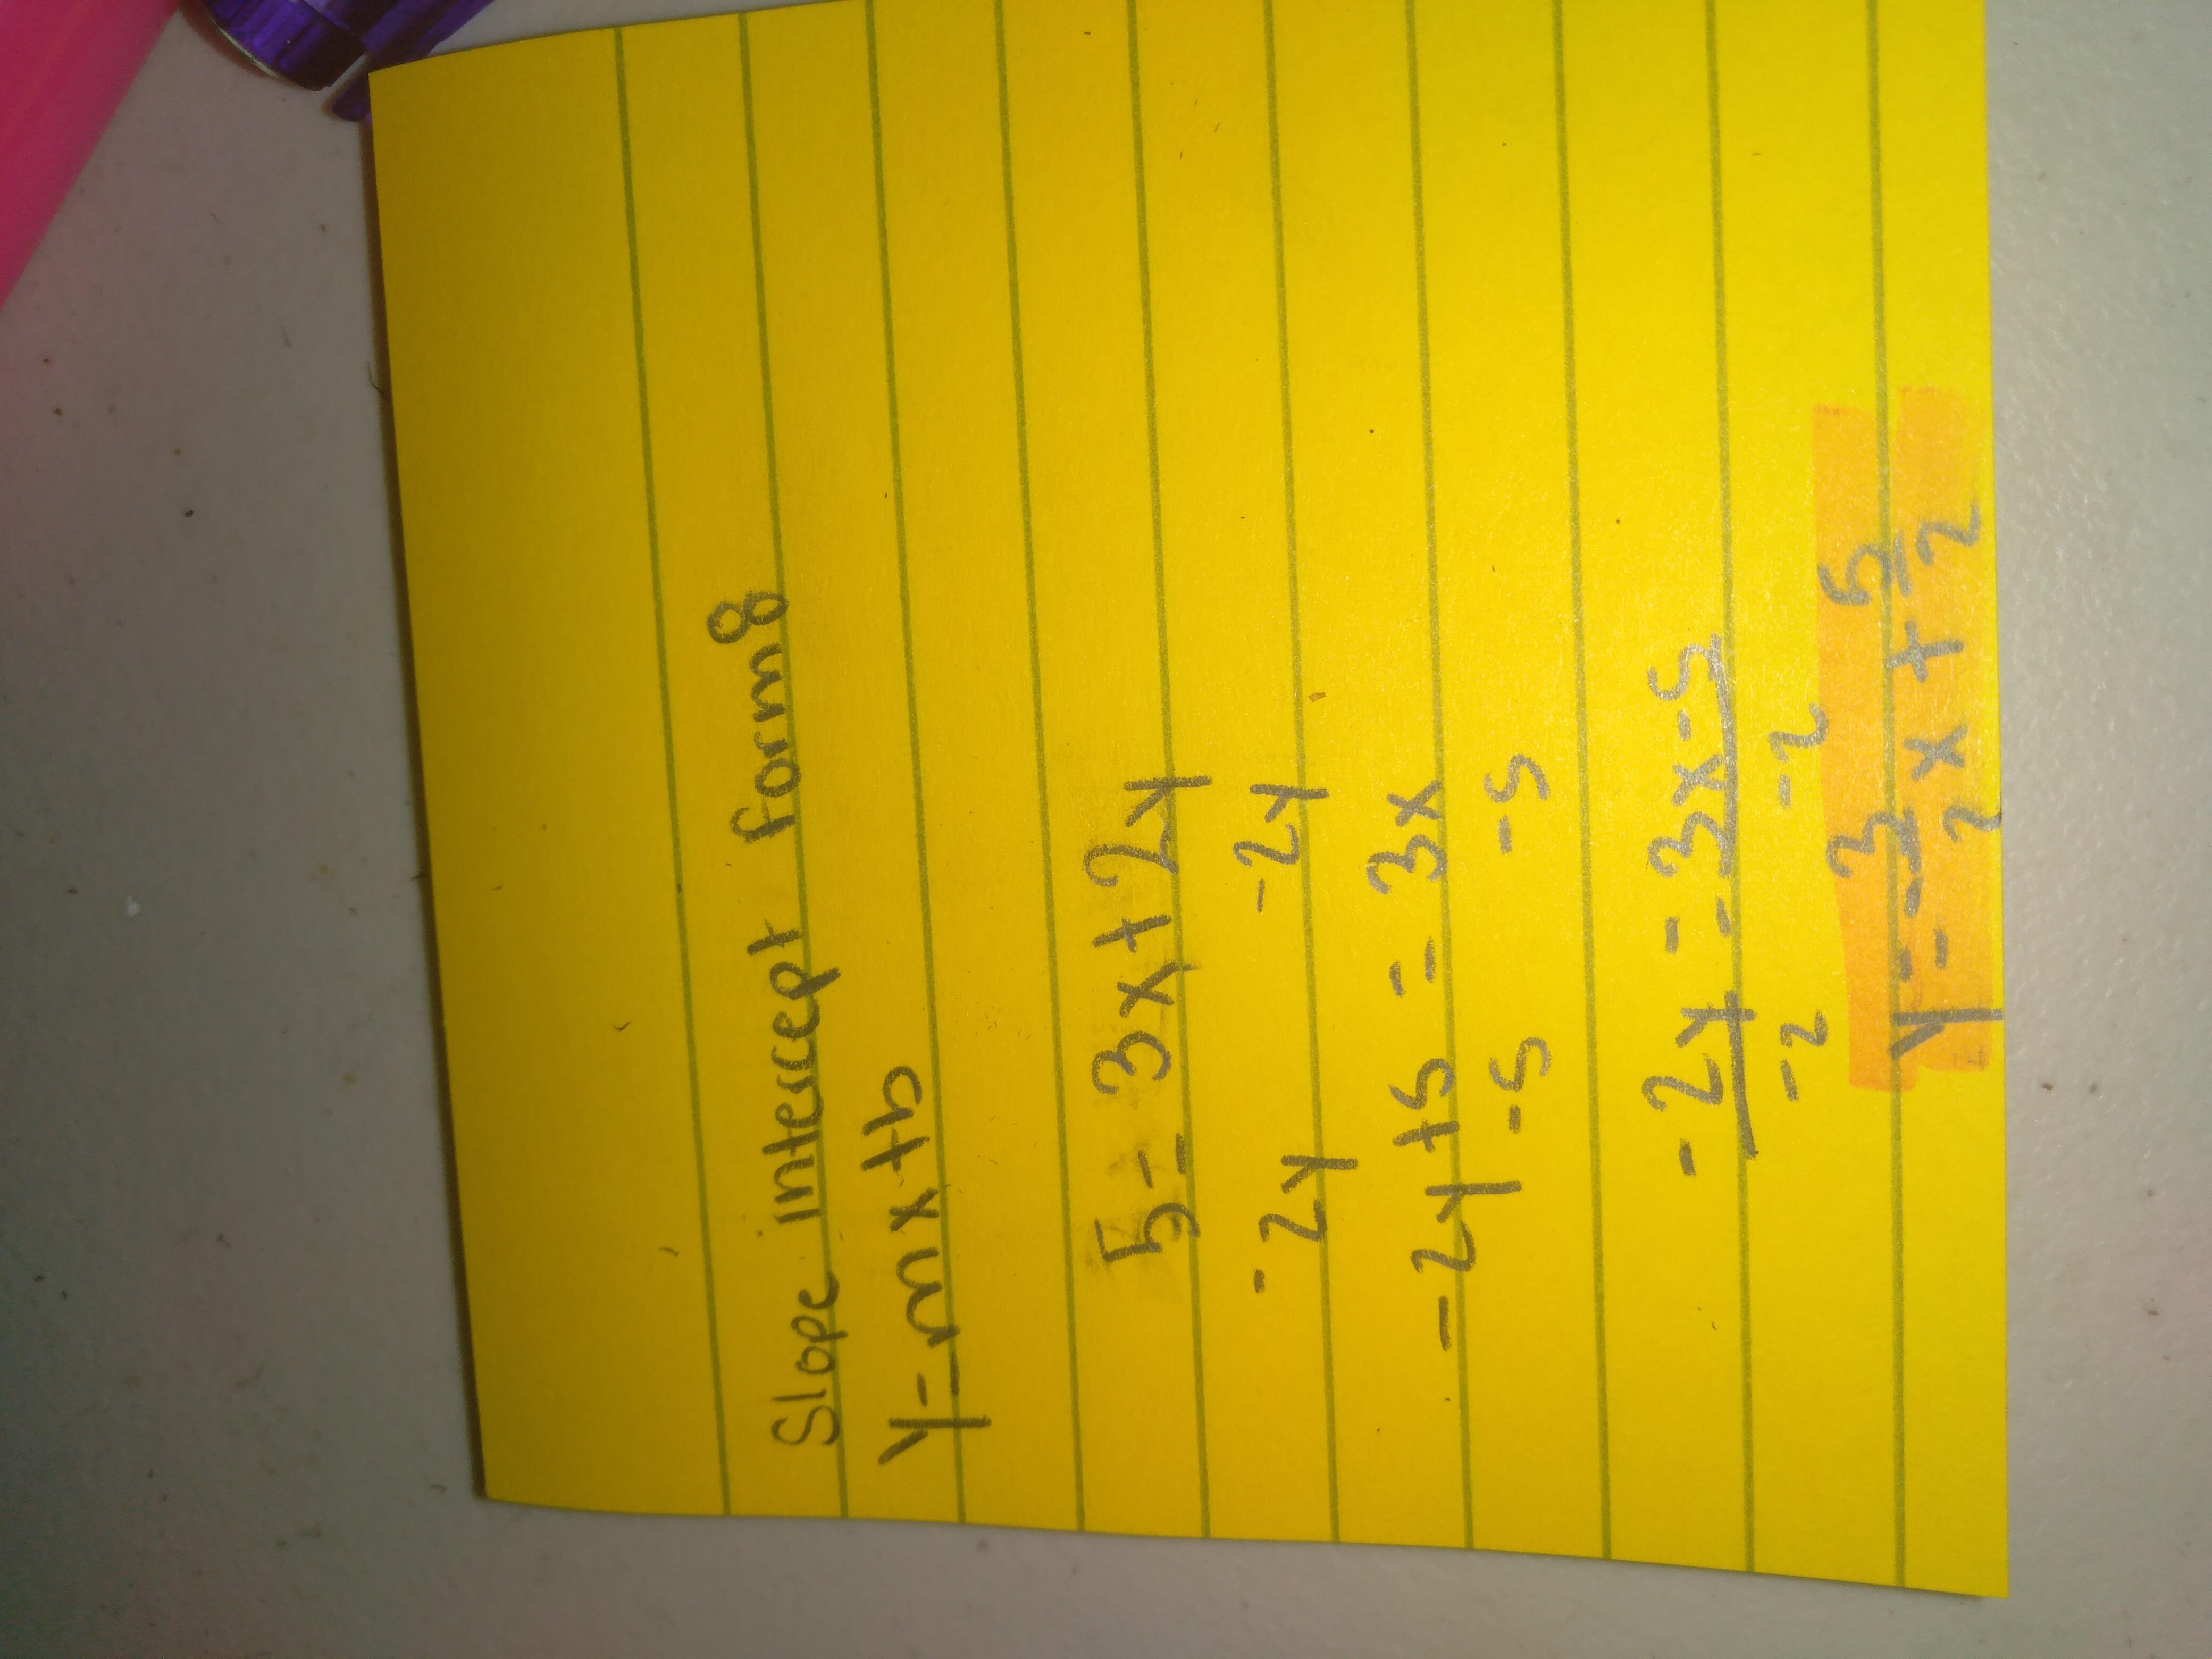 Slope intercept form8
y=mx+b
5= 3x+2y
-2y -2y
-2y+5 = 3x
-5 -5
-2y = 3x-5
-2 -2
y=-3/2x+5/2